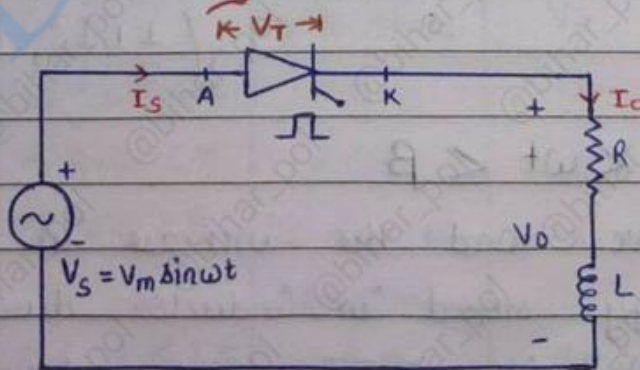 V_T
I_S A K + I_o
R
+
V_o
-
V_S = V_m sinωt
L
-
@bihar_pol